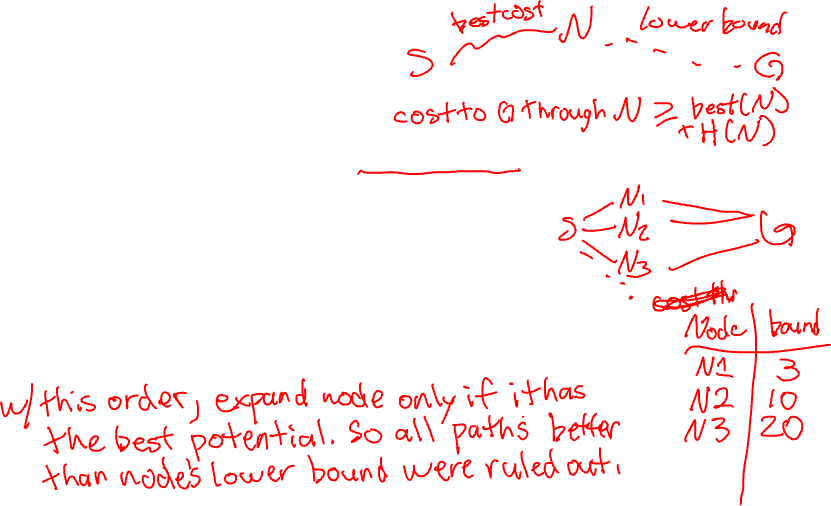 best cost
S N lower bound G
cost to G through N ≥ best(N)
+ H(N)
N1
S N2 G
N3
Node bound
N1 3
N2 10
N3 20
w/ this order, expand node only if it has
the best potential. So all paths better
than node's lower bound were ruled out.